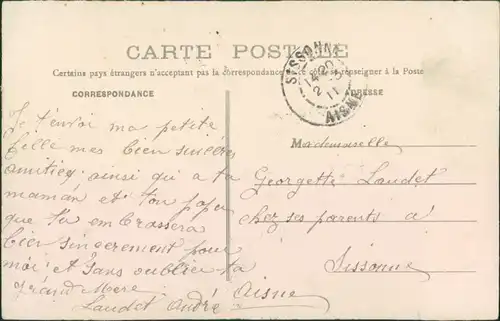 CARTE POSTALE
Certains pays étrangers n'acceptant pas la correspondance se renseigner à la Poste
CORRESPONDANCE
Je t'envoi ma petite
fille mes bien sincères
amitiez ainsi qui a ta
maman et ton papa
que tu embrassera
bien sincerement pour
moi et sans oublier ta
grand Mere
Laudet André
ADRESSE
Mademoiselle
Georgette Laudet
chez ses parents a
Sissonne
Aisne
SISSONNE
14 20
2 3
11
AISNE